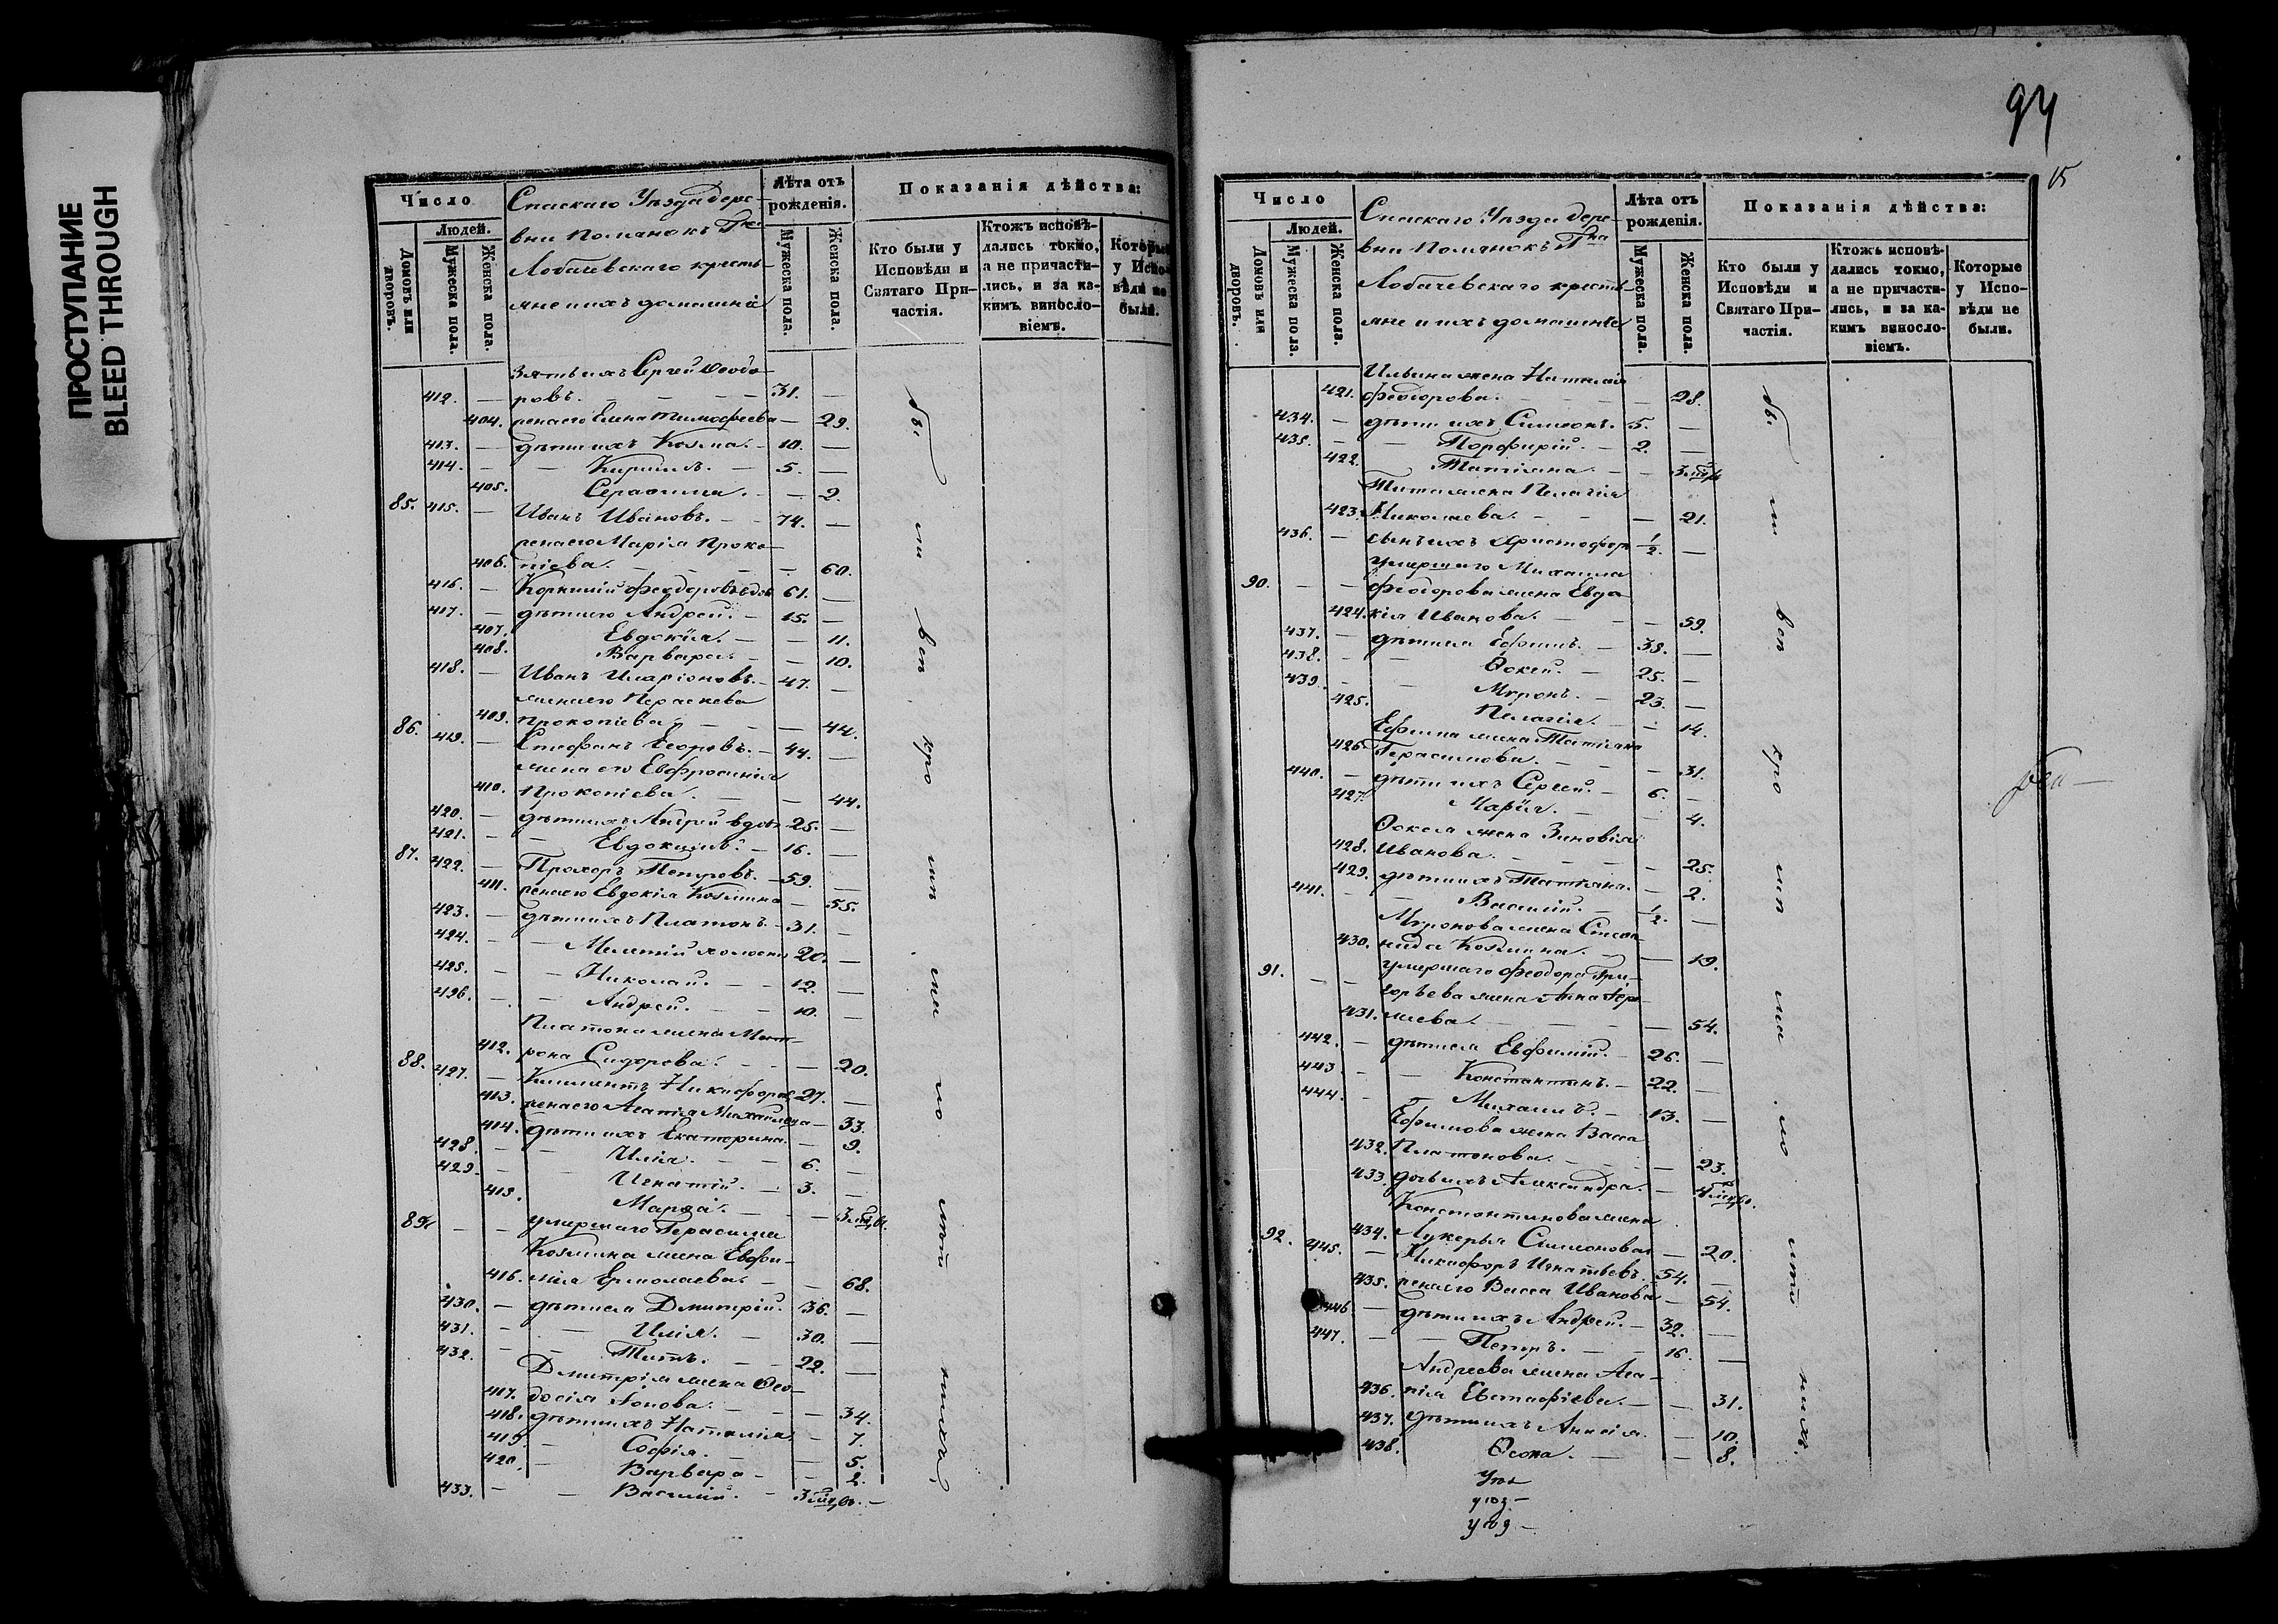 ПРОСТУПАНИЕ
BLEED THROUGH
Число
Людей.
Домовъ или дворовъ.
Мужеска пола.
Женска пола.
Спаскаго Уѣзда дере-
вни Полянокъ Гна
Лобачевскаго кресть-
яне и ихъ домашніе
Лѣта отъ рожденія.
Мужеска пола.
Женска пола.
Показанія дѣйства:
Кто были у Исповѣди и Святаго При-частія.
Ктожъ исповѣ-дались токмо, а не причасти-лись, и за ка-кимъ винословіемъ.
Которые у Испо-вѣди не были.
Зять ихъ Сергей Ѳеодо-
412. — ровъ. — 31. —
404. жена его Елена Тимофеева — 29.
413. — дѣти ихъ Козма. — 10. —
414. — Кирилъ. — 5. —
405. Серафима. — 2.
85. 415. — Иванъ Ивановъ. — 74. —
жена его Марія Проко-
406. піева. — 60.
416. — Корнилій Феодоровъ вдов 61. —
417. — дѣти его Андрей. — 15. —
407. Евдокія. — 11.
408. Варвара. — 10.
418. — Иванъ Иларіоновъ. — 47. —
жена его Параскева
409. Прокопіева. — 44.
86. 419. — Стефанъ Егоровъ. — 44. —
жена его Евфросинія
410. Прокопіева. — 44.
420. — дѣти ихъ Андрей вдовъ 25. —
421. — Евдокимъ. — 16. —
87. 422. — Прохоръ Петровъ. — 59. —
411. жена его Евдокія Козмина — 55.
423. — дѣти ихъ Платонъ. — 31. —
424. — Мелетій холостъ 20. —
425. — Николай. — 12. —
426. — Андрей. — 10. —
Платона жена Мат-
412. рона Сидорова. — 20.
88. 427. — Климентъ Никифоровъ 27. —
413. жена его Агапія Михайлова — 33.
414. дѣти ихъ Екатерина. — 9.
428. — Илія. — 6. —
429. — Игнатій. — 3. —
415. Марѳа. — 3 мѣс.
89. — — умершаго Герасима
Козмина жена Евфи-
416. мія Ермолаева. — 68.
430. — дѣти ея Дмитрій. 36. —
431. — Илія. — 30. —
432. — Титъ. — 22. —
Дмитрія жена Ѳео-
417. досія Іонова. — 34.
418. дѣти ихъ Наталія. — 7.
419. — Софія. — 5.
420. — Варвара — 2.
433. — Василій. — 3 мѣс. —
бы ли въ кро мѣ ма ло лѣт нихъ.
94
15
Число
Людей.
Домовъ или дворовъ.
Мужеска пола.
Женска пола.
Спаскаго Уѣзда дере-
вни Полянокъ Гна
Лобачевскаго кресть-
яне и ихъ домашніе
Лѣта отъ рожденія.
Мужеска пола.
Женска пола.
Показанія дѣйства:
Кто были у Исповѣди и Святаго При-частія.
Ктожъ исповѣ-дались токмо, а не причасти-лись, и за ка-кимъ винословіемъ.
Которые у Испо-вѣди не были.
Ильина жена Наталія
421. Феодорова. — 28.
434. — дѣти ихъ Симеонъ. 5. —
435. — Порфирій. — 2. —
422. Татіяна. — 3 мѣс
Тита жена Пелагія
423. Николаева. — 21.
436. — сынъ ихъ Христофоръ 1/2. —
умершаго Михаила
90. — — Феодорова жена Евдо-
424. кія Иванова. — 59.
437. — дѣти ея Ефимъ. — 38. —
438. — Ѳокей. — 25. —
439. — Миронъ. — 23. —
425. Пелагія. — 14.
Ефима жена Татіяна
426. Герасимова. — 31.
440. — дѣти ихъ Сергей. — 6. —
427. Марія. — 4.
Ѳокея жена Зиновія
428. Иванова. — 25.
429. дѣти ихъ Татіяна. — 2.
441. — Василій. — 1/2. —
Миронова жена Степа-
430. нида Козмина. — 19.
91. — — умершаго Феодора Гри-
горьева жена Анна Ере-
431. мѣева. — 54.
442. — дѣти ея Евфимій. — 26. —
443. — Константинъ. — 22. —
444. — Михаилъ. — 13. —
Ефимова жена Васса
432. Платонова. — 23.
433. дочь ихъ Александра. — 4 мѣс.
Константинова жена
434. Лукерья Симеонова — 20.
92. 445. — Никифоръ Игнатьевъ. 54. —
435. жена его Васса Иванова — 54.
446. — дѣти ихъ Андрей. — 32. —
447. — Петръ. — 16. —
Андреева жена Ага-
436. пія Евстафіева. — 31.
437. дѣти ихъ Анисія. — 10.
438. Ѳеона. — 8.
бы ли въ кро мѣ ма ло лѣт нихъ.